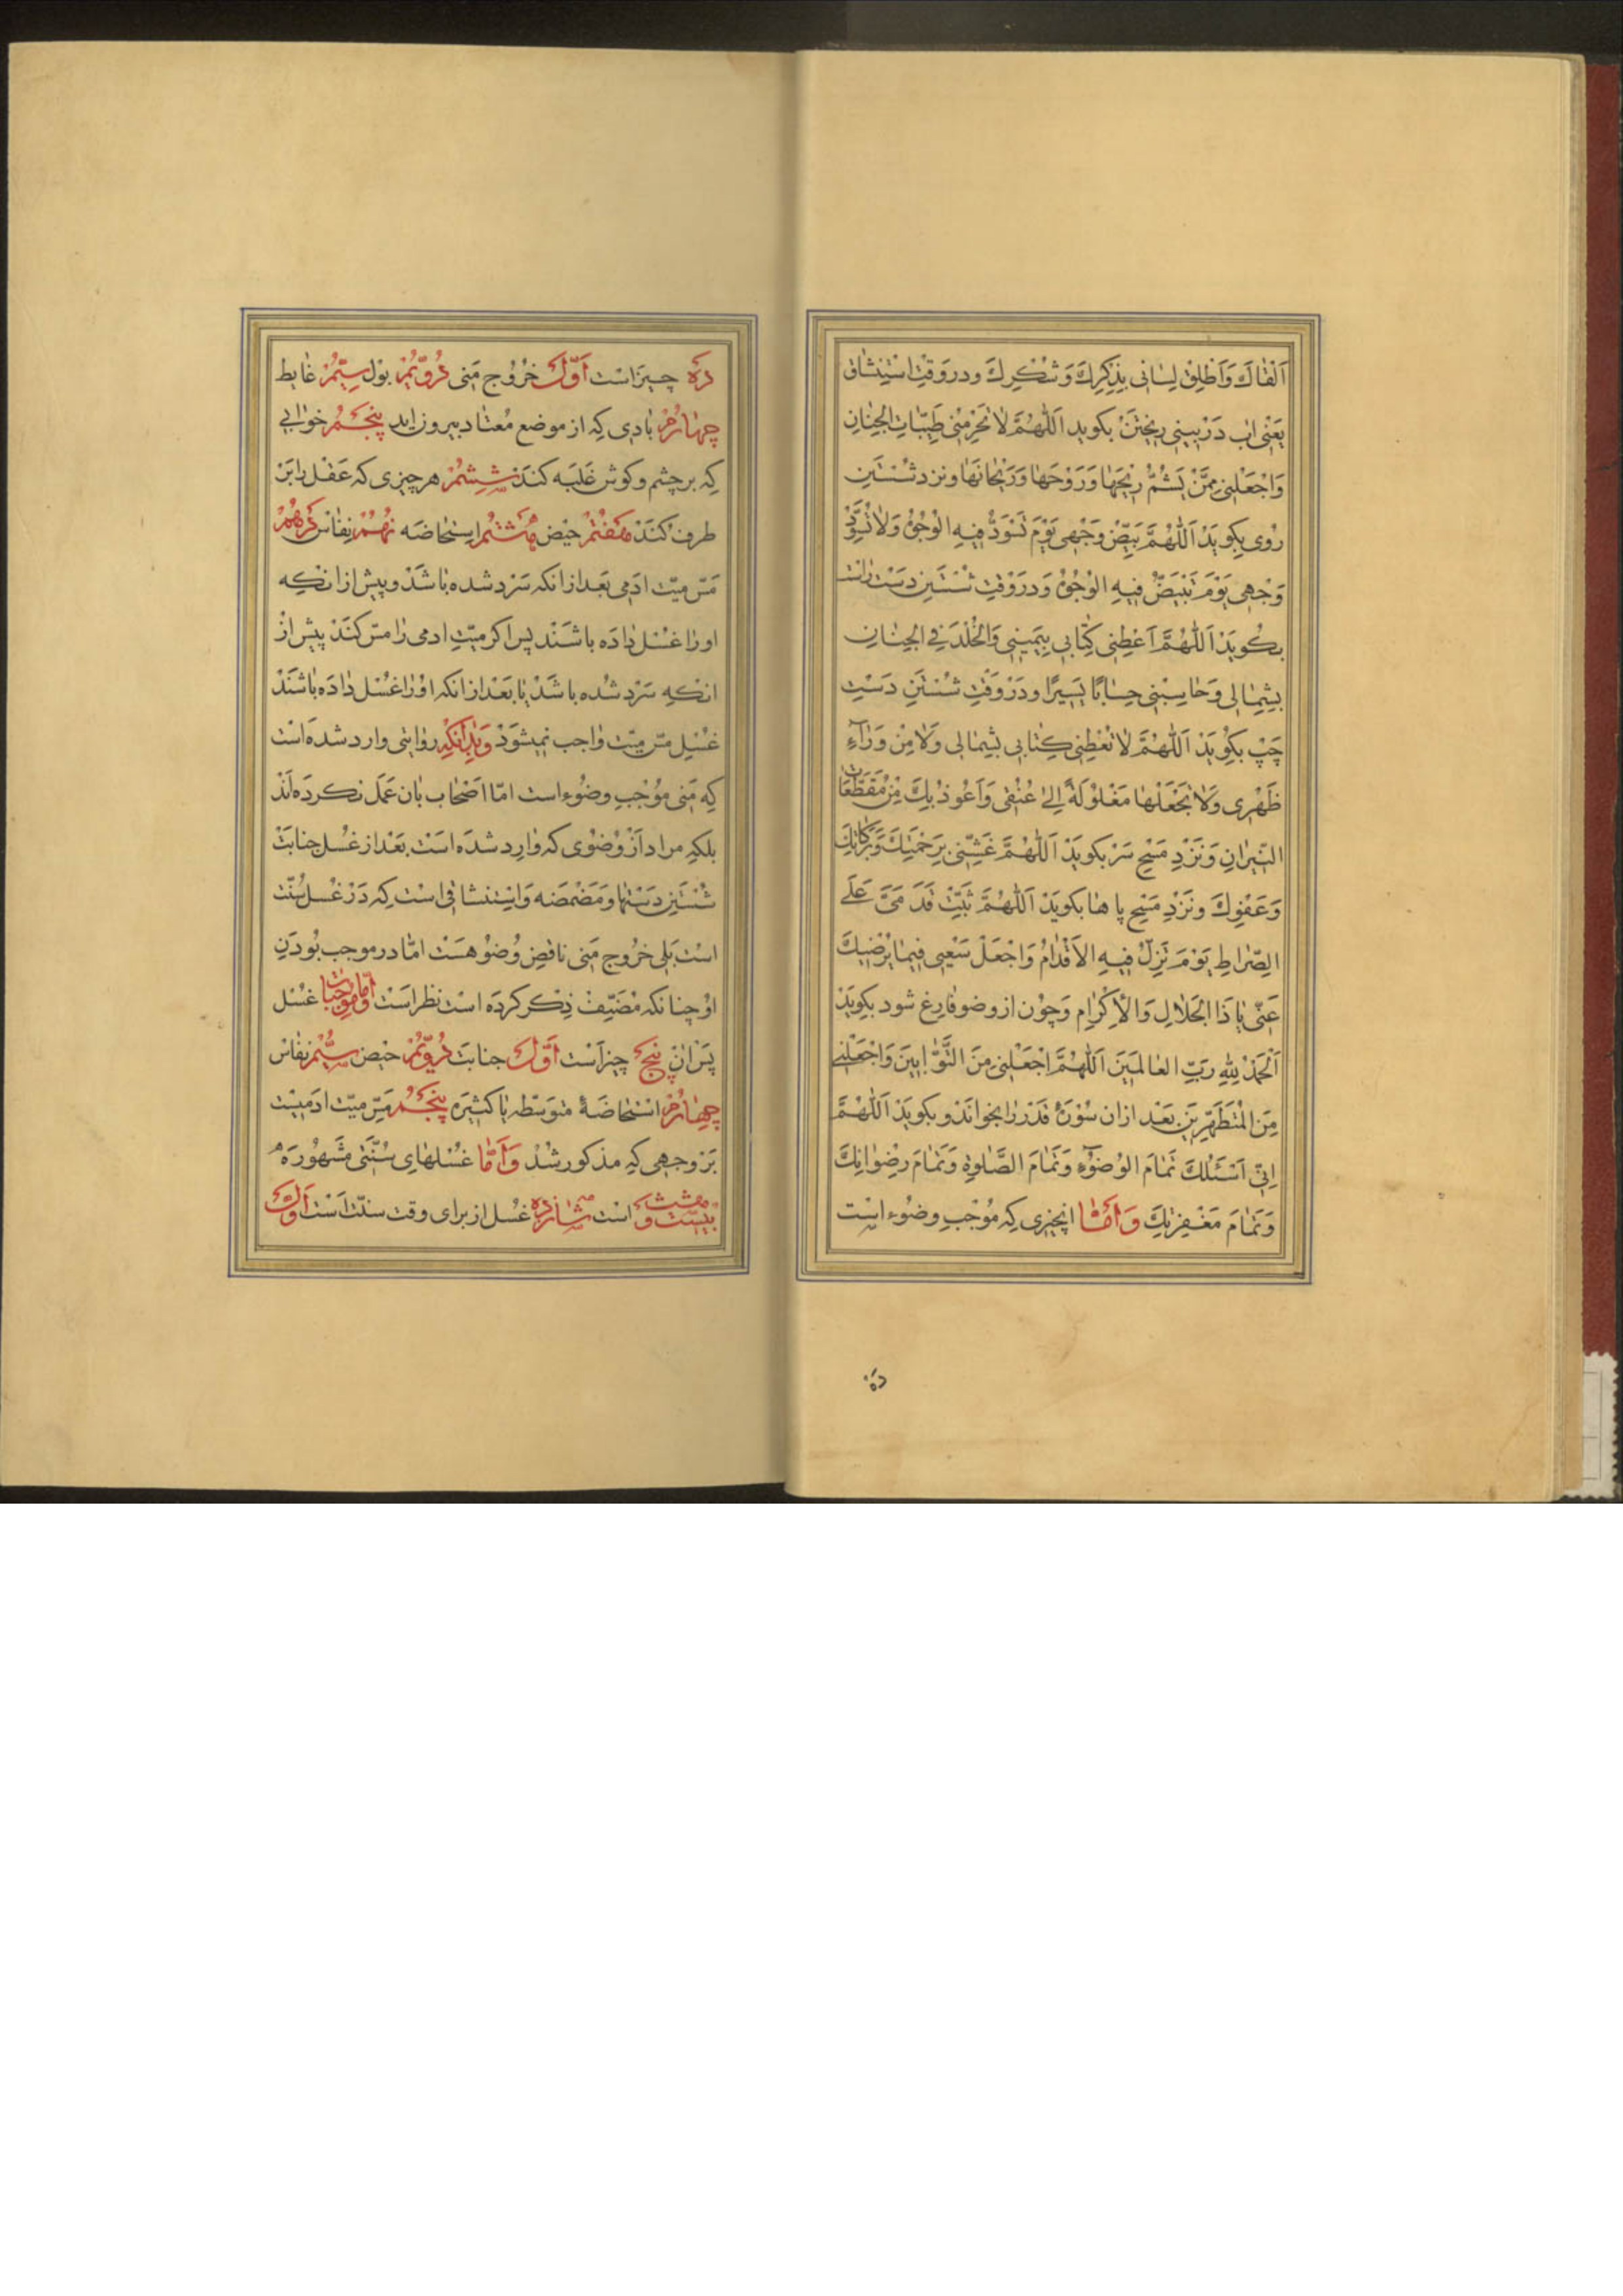 اَلْقٰاكَ وَاَطْلِقْ لِسٰانی بِذِكْرِكَ وَشُكْرِكَ ودر وَقْتِ اسْتِنْشٰاق
یَعْنی اٰب دَرْ بینی ریخْتَنْ بکوید اَللّٰهُمَّ لاٰ تُحَرِّمْنی طَیِّبٰاتِ الْجِنٰانِ
وَاجْعَلْنی مِمَّنْ یَشُمُّ ریٖحَهٰا وَرَوْحَهٰا وَرَیْحٰانَهٰا ونزد شُسْتَنِ
رُوی بِکویَدْ اَللّٰهُمَّ بَیِّضْ وَجْهی یَوْمَ تَسْوَدُّ فیٖهِ الْوُجُوْهُ وَلاٰ تُسَوِّدْ
وَجْهی یَوْمَ تَبْیَضُّ فیٖهِ الْوُجُوْهُ وَدر وَقْتِ شُسْتَنِ دَسْت رٰاست
بکُویَدْ اَللّٰهُمَّ اَعْطِنی کِتٰابی بِیَمیٖنی وَالْخُلْدَ فِی الْجِنٰانِ
بِشِمٰالی وَحٰاسِبْنی حِسٰابًا یَسیٖرًا ودَرْ وَقْتِ شُسْتَنِ دَسْتِ
چَپْ بِکُویَدْ اَللّٰهُمَّ لاٰ تُعْطِنی کِتٰابی بِشِمٰالی وَلاٰ مِنْ وَرٰآءِ
ظَهْری وَلاٰ تَجْعَلْهٰا مَغْلوُلَةً اِلیٰ عُنُقی وَاَعُوذُ بِكَ مِنْ مُقَطَّعٰاتِ
النّیٖرانِ وَنَزْدِ مَسْحِ سَرْ بکویَدْ اَللّٰهُمَّ غَشِّنی بِرَحْمَتِكَ وَبَرَکٰاتِكَ
وَعَفْوِكَ ونَزْدِ مَسْحِ پا هٰا بکویَدْ اَللّٰهُمَّ ثَبِّتْ قَدَمَیَّ عَلَی
الصِّرٰاطِ یَوْمَ تَزِلُّ فیٖهِ الاَقْدٰامُ وَاجْعَلْ سَعْیی فیٖمٰا یُرْضیٖكَ
عَنّی یٰا ذَا الْجَلاٰلِ وَالْاِکْرٰامِ وَچوُن از وضو فٰارِغ شود بکِویَدْ
اَلْحَمْدُ لِلّٰهِ رَبِّ الْعٰالَمیٖنَ اَللّٰهُمَّ اجْعَلْنی مِنَ التَّوّٰابیٖنَ وَاجْعَلْنی
مِنَ الْمُتَطَهِّریٖنَ بَعْد ازان سُوْرَهٔ قَدْر رٰا بخوٰانَدْ و بکویَدْ اَللّٰهُمَّ
اِنّی اَسْئَلُكَ تَمٰامَ الْوُضُوْءِ وَتَمٰامَ الصَّلوٰةِ وَتَمٰامَ رِضْوٰانِكَ
وَتَمٰامَ مَغْفِرَتِكَ وَاَمّٰا انچیزی کِه مُوْجِبِ وضُوء است
دَه
دَه چیٖز است اَوَّل خُرُوج مَنی دُوّیُمْ بوْل سِیّمُ غٰایط
چهٰارُمْ بٰادی کِه از موضعِ مُعْتٰاد بیرون اید پنجُم خوٰابی
کِه بر چشم و کوش غَلَبَه کنَدْ شِشُمْ هر چیزی کِه عَقْل رٰا بَرْ
طرف کنَدْ هَفْتُمْ حَیْض هَشتُم اِسْتِحٰاضَه نُهُمْ نِفٰاس دَهُمْ
مَسّ مِیّت ادَمی بَعْد ازانکه سَرْد شده بٰاشَدْ و پیش ازانکِه
اورٰا غسْل دٰادَه باشَنْد پس اکر میّتِ ادمی رٰا مسّ کنَدْ پیش ازْ
انکِه سَرْد شُده باشَدْ یٰا بَعْد ازانکه اوْرٰا غُسْل دٰادَه بٰاشَنْدْ
غُسْلِ مسّ میّت وٰاجب نمیشَوَدْ وَبِدٰانکِه رِوٰایتی وٰارد شده اَست
کِه مَنی مُوْجبِ وضُوء است امّا اَصْحٰاب بٰان عَمَل نکردَه اند
بلکه مراد ازْ وُضوُی که وٰارد شده است بَعْد از غُسْل جنٰابَتْ
شُسْتَنِ دَسْتهٰا و مَضْمَضَه وَاِسْتِنْشٰاق است کِه دَر غُسْل سُنّت
است بَلی خرُوج مَنی ناقِض وُضوُ هَست امّٰا در موجب بُودَنِ
اوْ چنانکه مُصَنِّفْ ذِکْر کردَه است نظر اسَت اَمّٰا موُجِبٰات غُسْل
پَسْ اٰنْ پنج چیز اَست اَوَّل جنابَت دُوّیُمْ حَیض سِیُّمْ نفٰاس
چهٰارُمْ اسْتِحٰاضَهٔ متوَسّطه یٰا کثیرَه پنجُم مَسّ میّت ادَمیست
بَر وجهی کِه مذکور شُدْ وَاَمّٰا غسْلهٰای سُنّتی مشَهُورَه
بیست و هشت است شٰانزدَه غسْل از برای وقت سنّت اَست اَوَّل